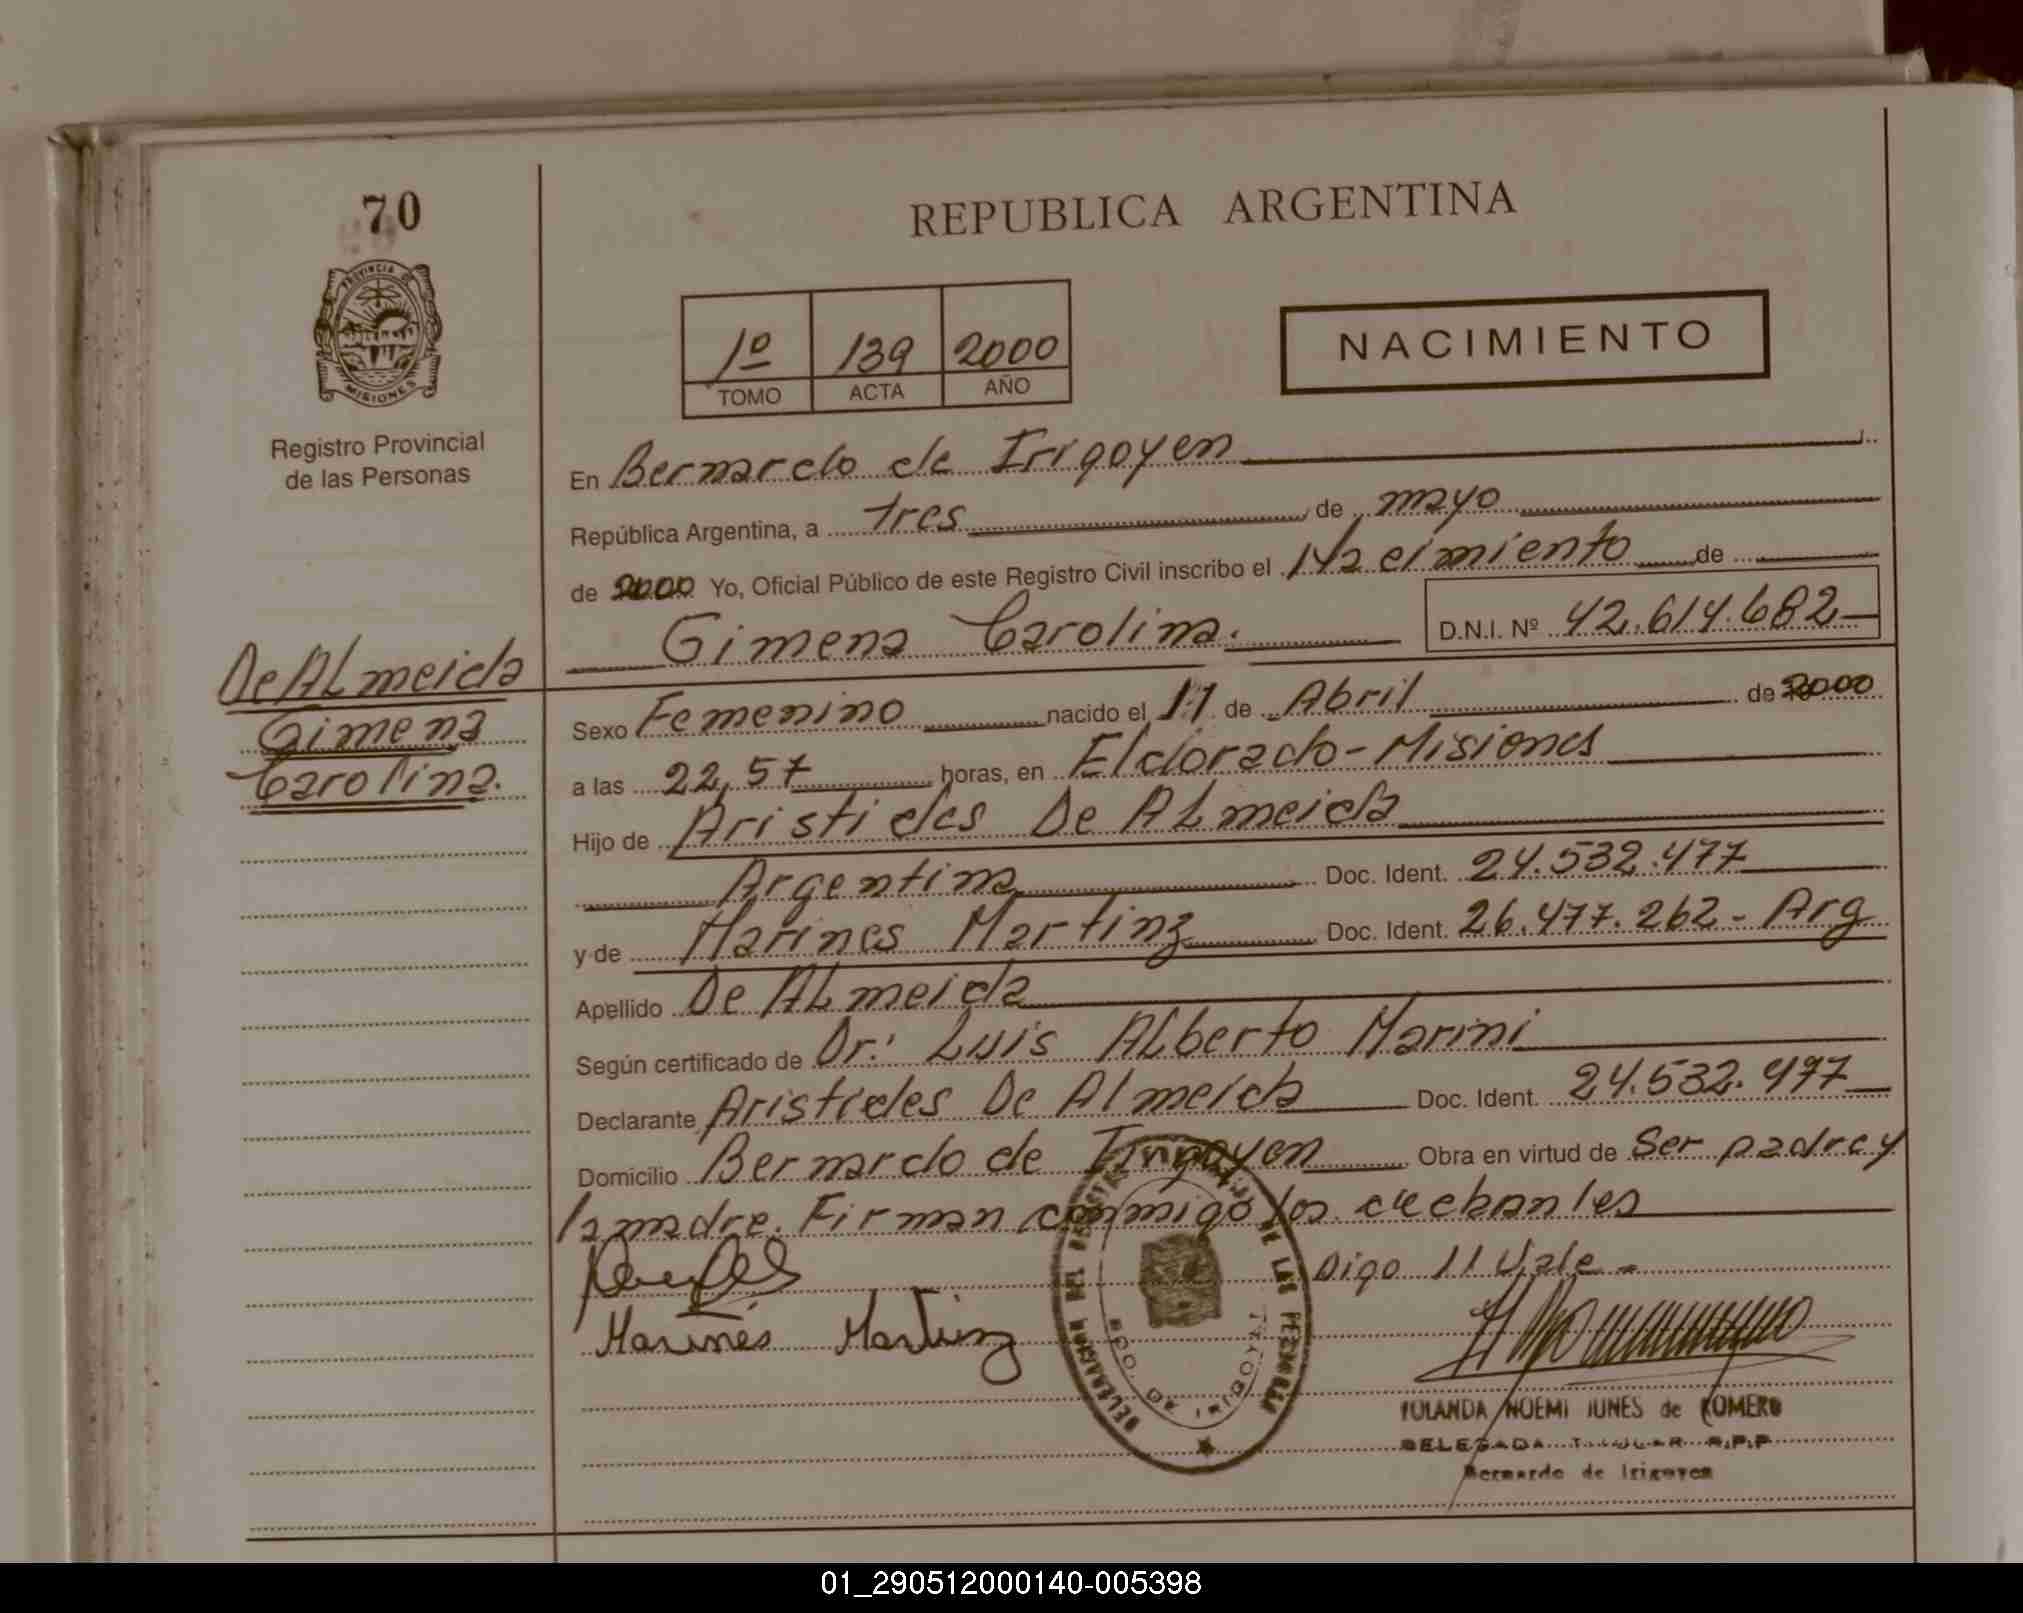 70
REPUBLICA ARGENTINA
PROVINCIA DE
MISIONES
Registro Provincial
de las Personas
1º 139 2000
TOMO ACTA AÑO
NACIMIENTO
En Bernardo de Irigoyen
República Argentina, a tres de mayo
de 2000 Yo, Oficial Público de este Registro Civil inscribo el Nacimiento de
Gimena Carolina. D.N.I. Nº 42.614.682
De ALmeida
Gimena
Carolina.
Sexo Femenino nacido el 11 de Abril de 2000
a las 22,57 horas, en Eldorado-Misiones
Hijo de Aristides De ALmeida
Argentina Doc. Ident. 24.532.477
y de Marines Martinz Doc. Ident. 26.477.262- Arg
Apellido De ALmeida
Según certificado de Dr: Luis ALberto Marini
Declarante Aristides De Almeida Doc. Ident. 24.532.477
Domicilio Bernardo de Irigoyen Obra en virtud de Ser padre y
la madre. Firman conmigo los
Digo 11 Vale-
Marines Martinz
DELEGACION DEL REGISTRO DE LAS PERSONAS
BDO. DE IRIGOYEN
YOLANDA NOEMI IUNES de ROMERO
DELEGADA TITULAR R.P.P
Bernardo de Irigoyen
01_290512000140-005398